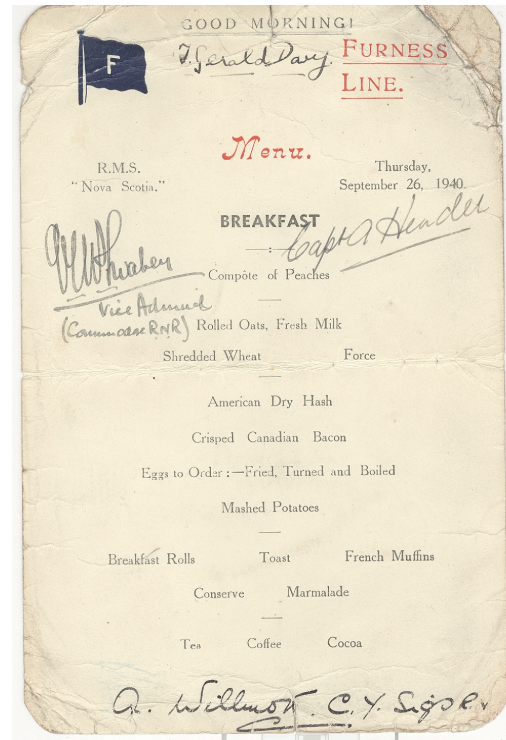 GOOD MORNING!
F
F. Gerald Davy.
FURNESS
LINE.
Menu.
R.M.S.
"Nova Scotia."
Thursday,
September 26, 1940.
BREAKFAST
Capt A Hender
Compôte of Peaches
Vice Admiral
(Commodore RNR)
Rolled Oats, Fresh Milk
Shredded Wheat Force
American Dry Hash
Crisped Canadian Bacon
Eggs to Order :—Fried, Turned and Boiled
Mashed Potatoes
Breakfast Rolls Toast French Muffins
Conserve Marmalade
Tea Coffee Cocoa
A. Willmott. C. Y. Sigs